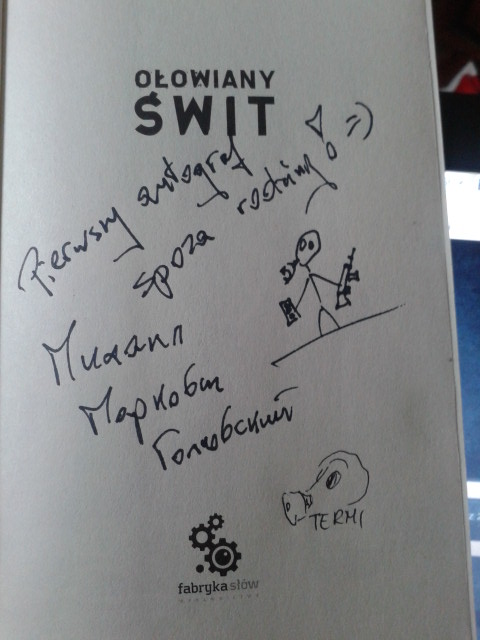 OŁOWIANY
ŚWIT
Pierwszy autograf
spoza rodziny! =)
Михаил
Маркович
Голковский
TERMI
fabryka słów